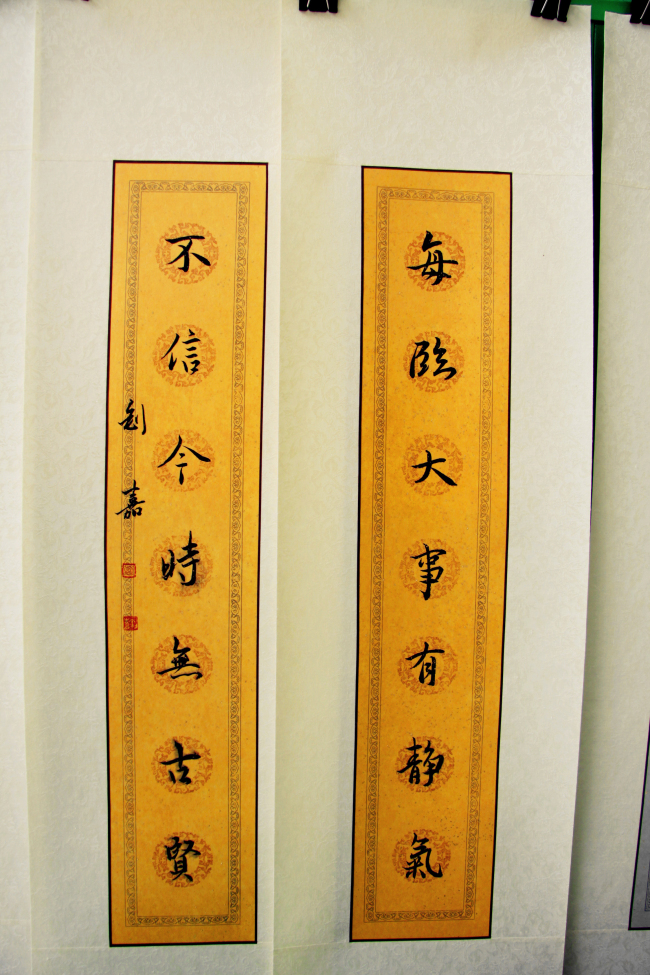 每臨大事有静氣
不信今時無古賢
劍嘉